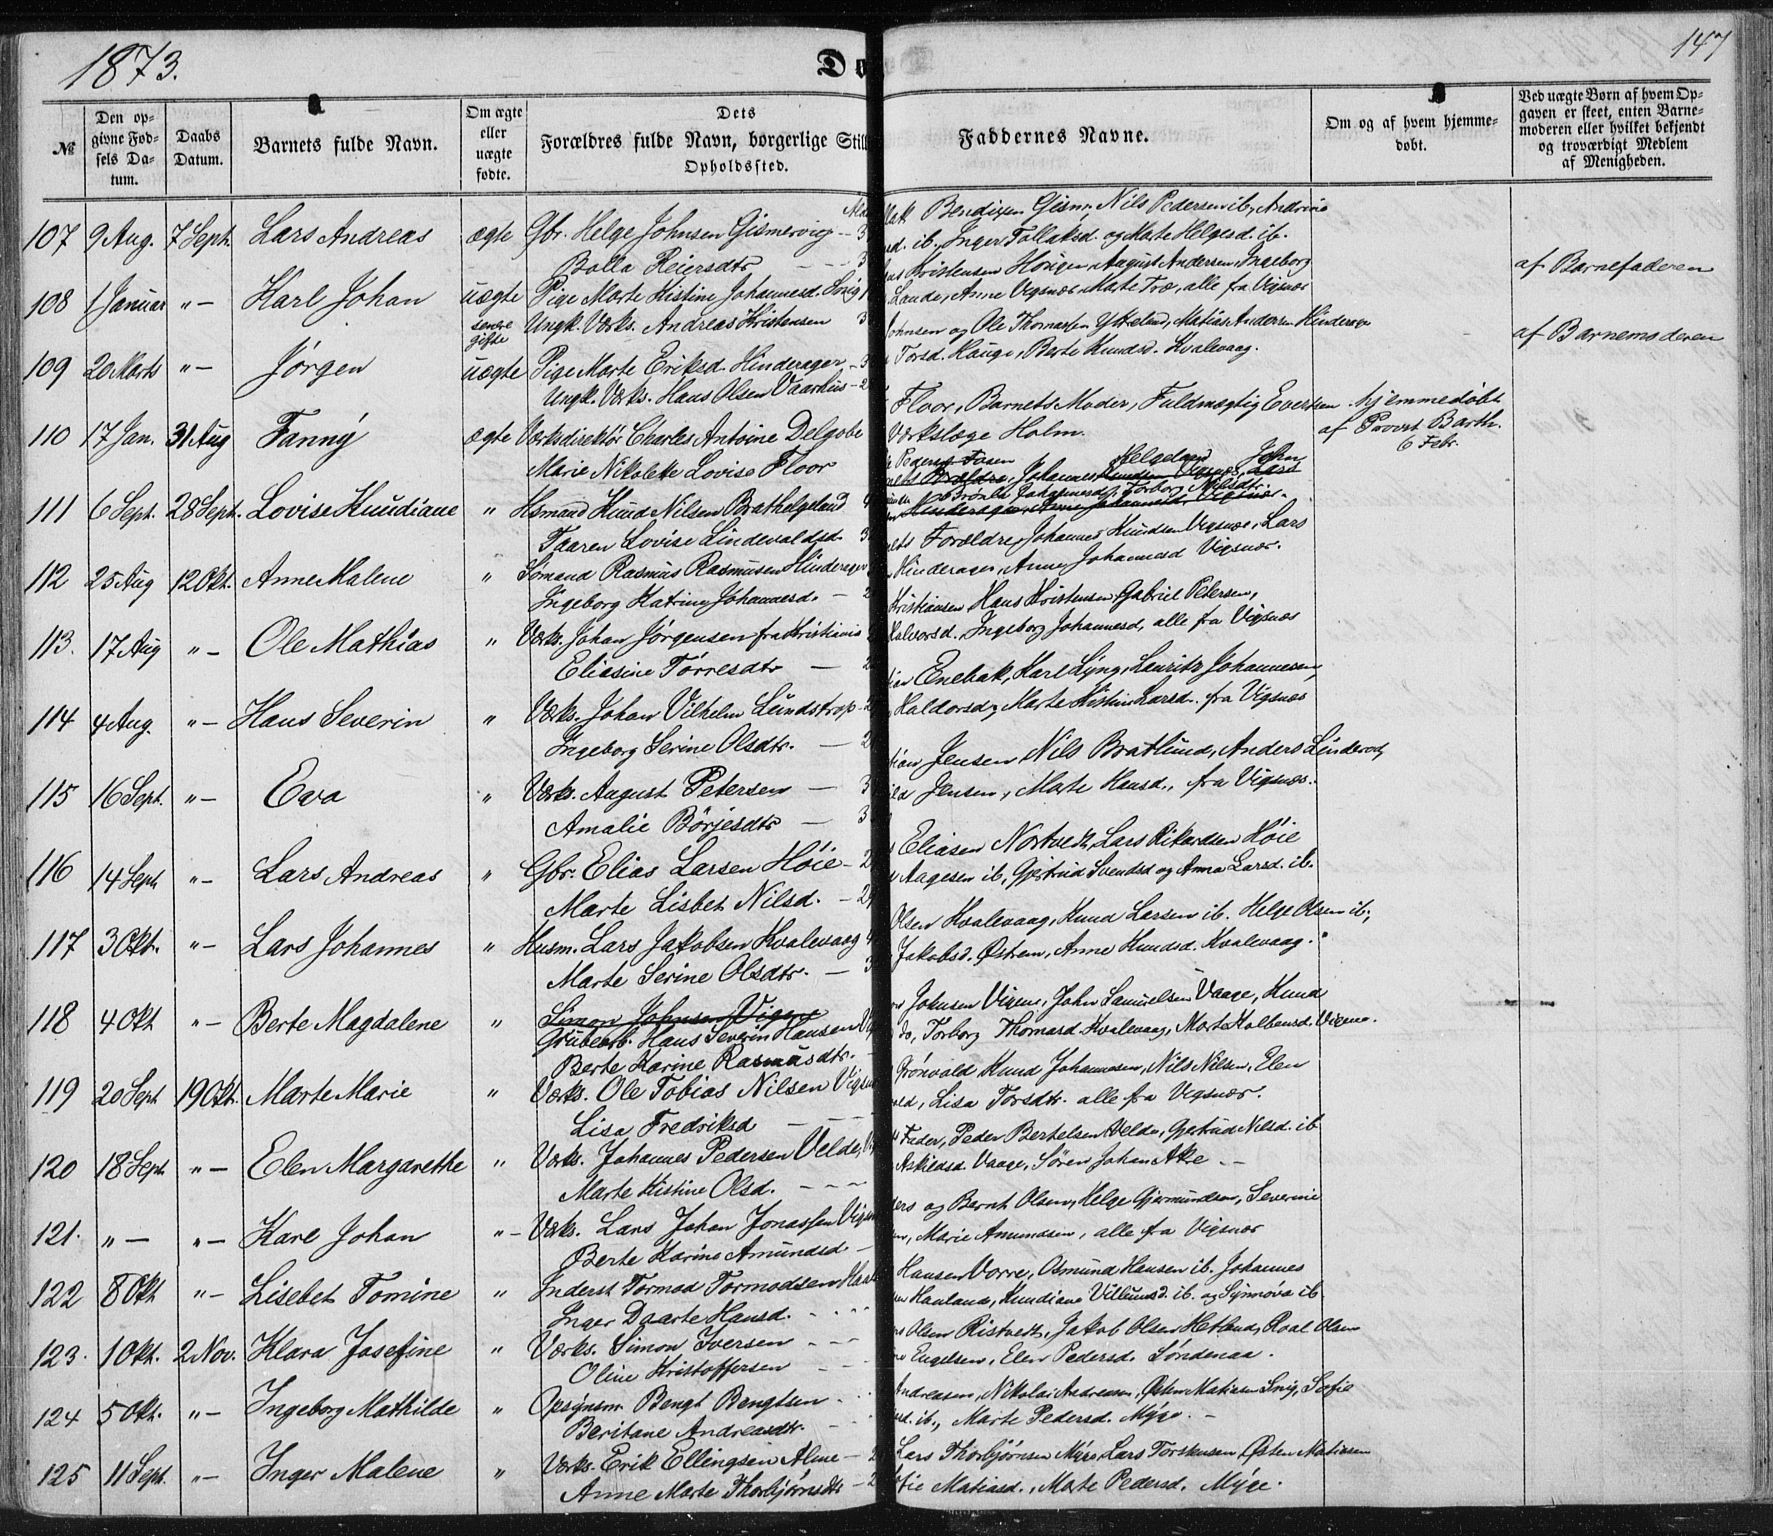 1873.
147
Dø
№
Den op-
givne Fød-
sels Da-
tum.
Daabs
Datum.
Barnets fulde Navn.
Om ægte
eller
uægte
fødte.
Dets
Forældres fulde Navn, borgerlige Still
Opholdssted.
Faddernes Navne.
Om og af hvem hjemme-
døbt.
Ved uægte Børn af hvem Op-
gaven er skeet, enten Barne-
moderen eller hvilket bekjendt
og troværdigt Medlem
af Menigheden.
107 9 Aug. 7 Sept. Lars Andreas ægte Gbr. Helge Johnsen Gismervig
Bolla Reiersdtr
Bendixen Gismr, Nils Pedersen ib, Andrine
ib. Inger Tollaksd. og Marte Helgesd. ib.
108 1 Januar "- Karl Johan uægte Pige Marte Kistine Johannesd. Snig
senere gifte Ungk. Værks. Andreas Kristensen
Kristensen Hougen, August Andersen, Ingeborg
Lande, Anne Vigsnæs, Mate Træ, alle fra Vigsnæs
af Barnefaderen
109 20 Marts "- Jørgen uægte Pige Marte Eriksd. Hinderager
Ungk. Værks. Hans Olsen Vaarhus
og Ole Thomassen Ytreland, Matias Andersen Hinderager
Torsd. Hauge, Berte Knudsd. Kvalevaag.
af Barnemoderen
110 17 Jan. 31 Aug Fanny ægte Værksdirektør Charles Antoine Delgobe
Marie Nikolette Lovise Floor
Floor, Barnets Moder, Fuldmægtig Evertsen
Værkslæge Holm.
hjemmedøbt
af Provst Barth
6 Febr.
111 6 Sept. 28 Sept. Lovise Knudiane " Hsmand Knud Nilsen Brathelgeland
Taaren Lovise Lindevaldsd.
112 25 Aug 12 Okt. Anne Malene " Sømand Rasmus Rasmusen Hinderager
Ingeborg Katrine Johannesd.
Forældre, Johannes Knudsen Vigsnæs, Lars
Hinderager, Anne Johannesd Vigsnæs.
113. 17 Aug "- Ole Mathias " Værks. Johan Jørgensen fra Kristiania
Eliasine Tørresdtr
Kristiansen Hans Kristensen, Gabriel Petersen,
Halvorsd. Ingeborg Johannesd, alle fra Vigsnæs
114 4 Aug. "- Hans Severin " Værks. Johan Vilhelm Lundstrøp
Ingeborg Serine Olsdtr.
Enebak, Karl Lyng, Lauritz Johannesen,
Haldorsd, Marte Kistine Larsd. fra Vigsnæs
115 16 Sept. "- Eva " Værks. August Petersen
Amalie Børjesdtr
Jensen Nils Bratlund, Anders Linderod,
Jensen, Marte Hansd., fra Vigsnæs.
116 14 Sept "- Lars Andreas " Gbr. Elias Larsen Høie
Marte Lisbet Nilsd.
Eliasen Nortvedt, Lars Rikardsen Høie
Aagesen ib, Gjertrud Svendsd og Anna Larsd. ib.
117 3 Okt. "- Lars Johannes " Husm. Lars Jakobsen Kvalevaag
Marte Serine Olsdtr.
Olsen Kvalevaag, Knud Larsen ib. Helge Olsen ib;
Jakobsd. Østrem, Anne Knudsd. Kvalevaag.
118 4 Okt "- Berte Magdalene " Simon Johnsen
Grubearb. Hans Severin Hansen
Berte Karine Rasmusdtr.
Johnsen Vigene, John Samuelsen Vaage, Knud
do, Torborg Thomasd. Kvalevaag, Marte Kolbensd. Vigene.
119 20 Sept 19 Okt. Marte Marie " Værks. Ole Tobias Nilsen Vigsn
Lisa Fredriksd
Grönvold Knud Johannesen, Nils Nilsen, Elen
Lisa Torsdtr. alle fra Vigsnæs.
120 18 Sept "- Elen Margarethe " Værks. Johannes Pedersen Velde,
Marte Kistine Olsd.
Fader, Peder Bertelsen Velde, Gjertrud Nilsd. ib
Askildsd. Vaage, Søren Johan Ake.
121. "- "- Karl Johan "- Værks. Lars Johan Jonassen Vigsn
Berte Karine Amundsd
og Bernt Olsen, Helge Gjermundsen, Severine
Marie Amundsen, alle fra Vigsnæs
122 8 Okt "- Lisebet Tomine " Inderst Tormod Tormodsen
Inger Daarte Hansd.
Hansen Vorre, Osmund Hansen ib. Johannes
Hauland, Knudiane Villumsd. ib. og Synnøva ib
123. 1 Okt. 2 Nov. Klara Josefine " Værks. Simon Iversen
Oline Kristoffersen
Olsen Ristvedt, Jakob Olsen Hetland, Roal Olsen
Engelsen, Elen Pedersd. Søndenaa.
124 5 Okt. "- Ingeborg Mathilde " Opsynsm. Bengt Bengtsen
Beritane Andreasdtr.
Andreasen, Nikolai Andreasen, Østen Matiasen Snig, Sofie
ib., Marte Pedersd. Myge.
125 11 Sept. "- "Inger Malene " Værks. Erik Ellingsen Alme
Anne Marte Thorbjørnsdtr
Lars Thorbjørnsen Myge, Lars Torstensen, Østen Matiasen
Matiasd., Marte Pedersd. Myge.